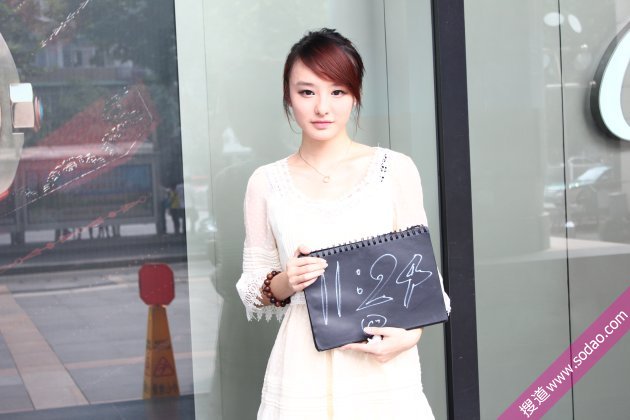 11:24
搜道 www.sodao.com